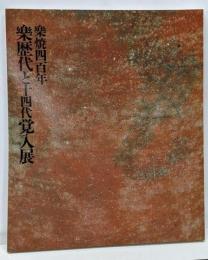 楽焼四百年
楽歴代と十四代覚入展